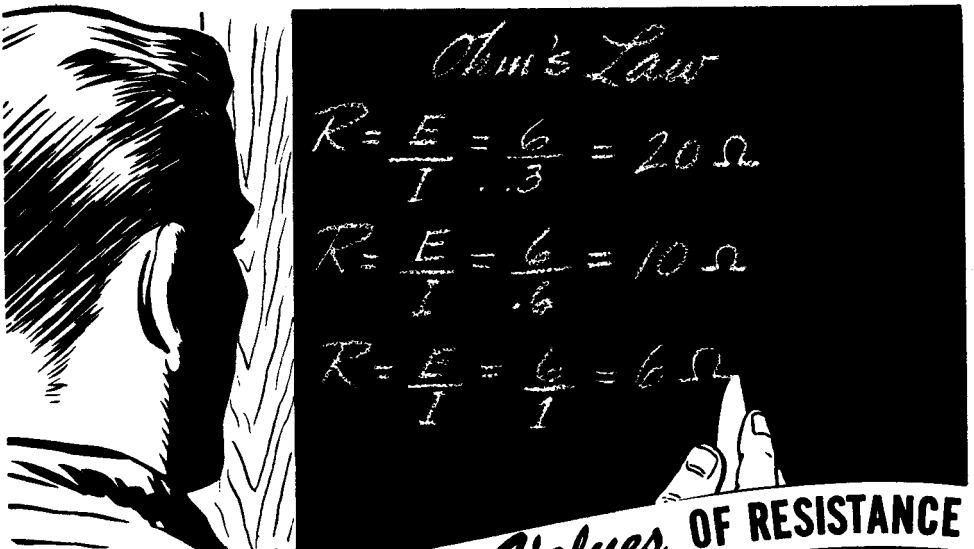 Ohm's Law
R = E/I = 6/.3 = 20 Ω
R = E/I = 6/.6 = 10 Ω
R = E/I = 6/1 = 6 Ω
Values OF RESISTANCE